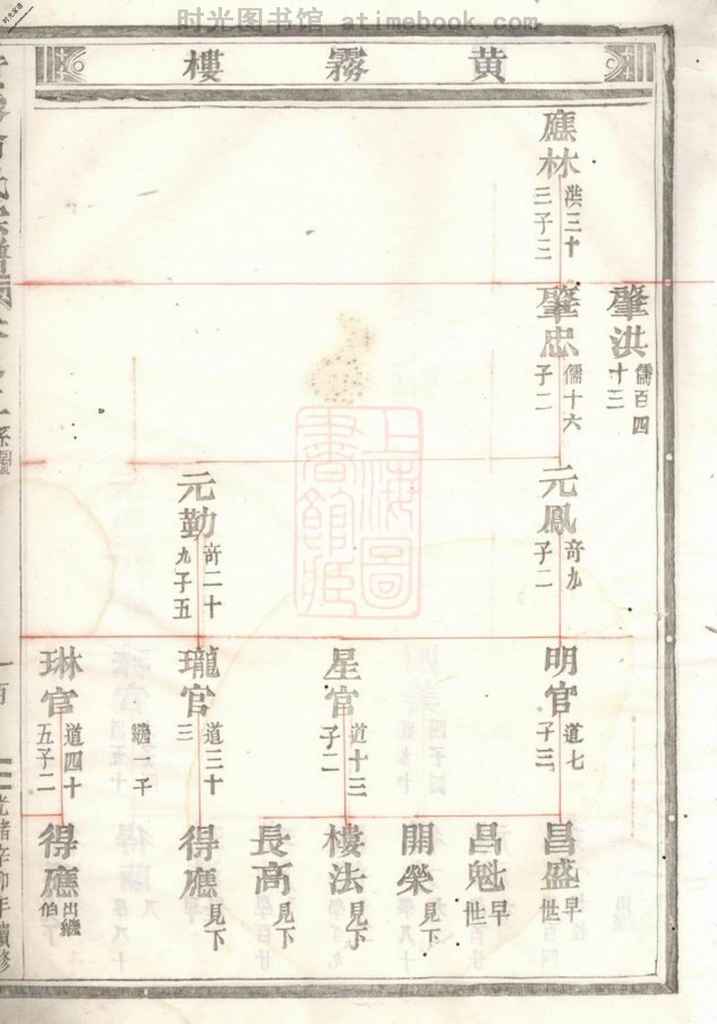 时光图书馆 atimebook.com
时光家谱
黄霧樓
應林 洪三十三子三
肇洪 儒百四十三
肇忠 儒十六子二
元鳳 竒九子二
元勤 竒二十九子五
明官 道七子三
星官 道十三子二
瓏官 道三十三
繼一子
琳官 道四十五子二
昌盛 早世
昌魁 早世
開榮 見下
樓法 見下
長高 見下
得應 見下
得應 出繼伯
系圖
一百
光緒辛卯年續修
上海圖書館藏